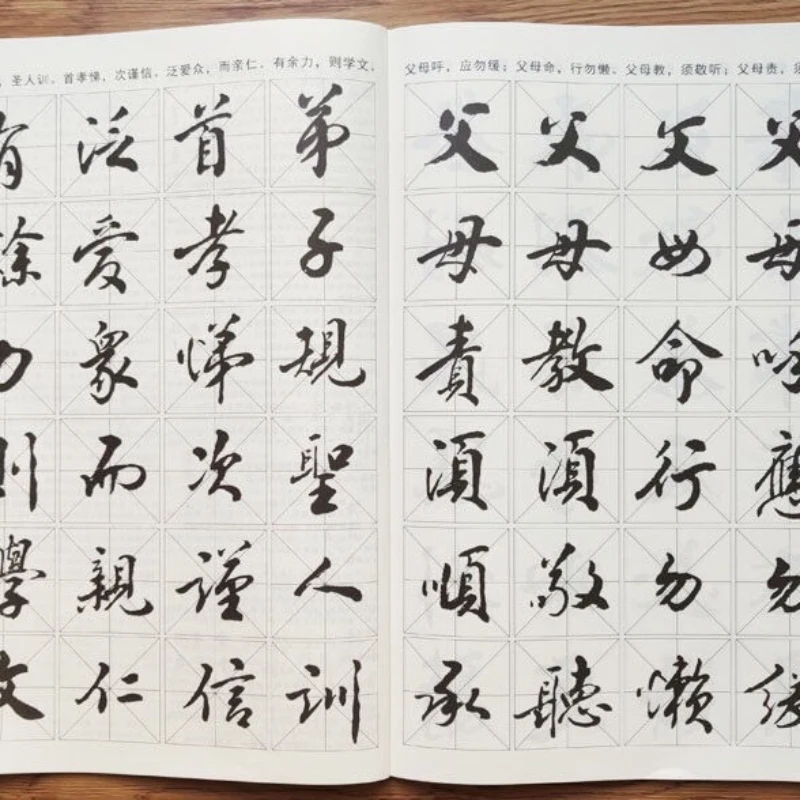 圣人训。首孝悌，次谨信。泛爱众，而亲仁。有余力，则学文。
弟子規聖人訓
首孝悌次謹信
泛愛衆而親仁
有餘力則學文
父母呼，应勿缓；父母命，行勿懒。父母教，须敬听；父母责，须
父母呼應勿緩
父母命行勿懶
父母教須敬聽
父母責須順承